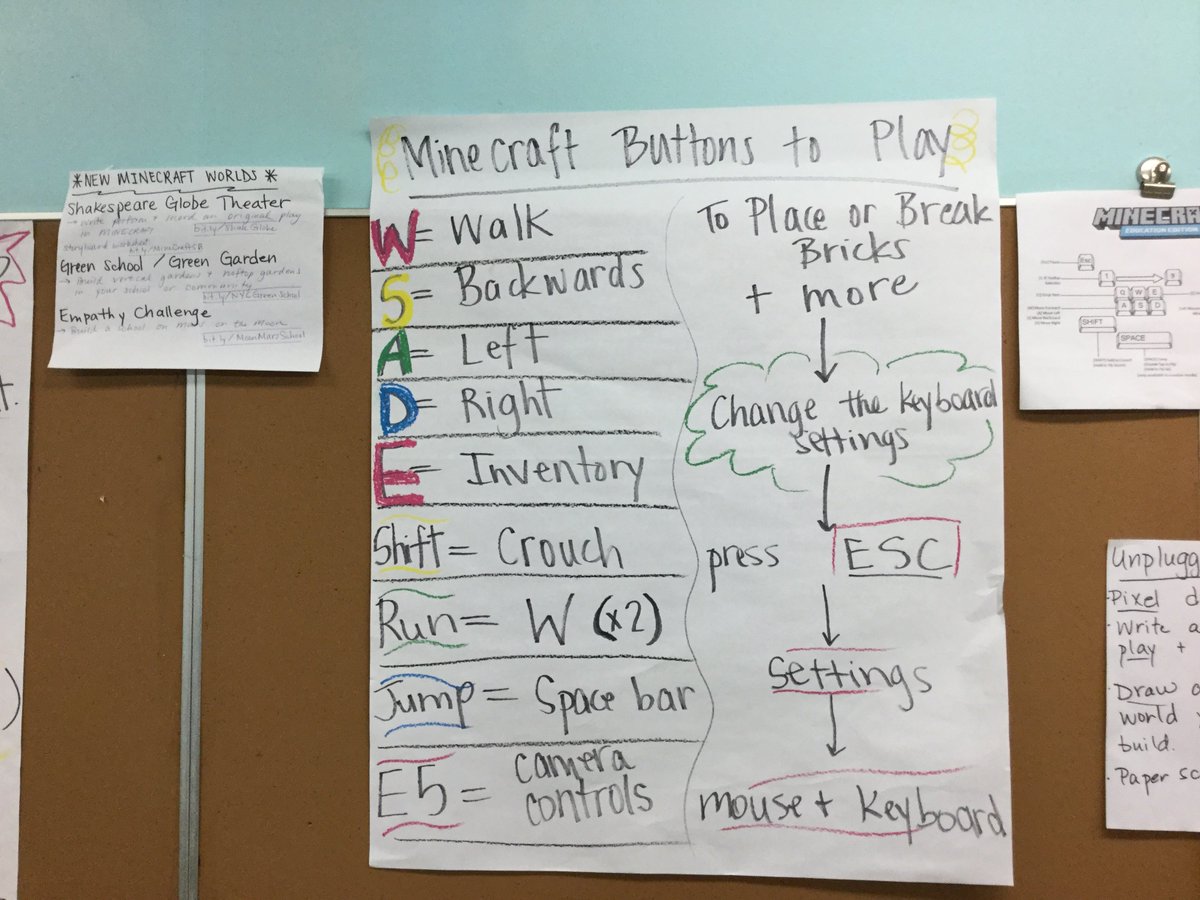 Minecraft Buttons to Play
W = Walk
S = Backwards
A = Left
D = Right
E = Inventory
Shift = Crouch
Run = W (x2)
Jump = Space bar
E5 = camera
controls
To Place or Break
Bricks
+ more
Change the keyboard
settings
press ESC
settings
mouse + keyboard
*NEW MINECRAFT WORLDS *
Shakespeare Globe Theater
→ Write perform + record an original play
in MINECRAFT bit.ly/ShakGlobe
storyboard worksheet
bit.ly/MineCraftSB
Green School / Green Garden
→ Build vertical gardens + rooftop gardens
in your school or community
bit.ly/NYCGreenSchool
Empathy Challenge
→ Build a school on mars or the moon
bit.ly/MoonMarsSchool
MINECRA
EDUCATION EDITION
Esc
1 9
Q W E
A S D
SHIFT
SPACE
Unplugg
· Pixel d
· Write a
play +
· Draw a
world
build.
· Paper sc
t.
)